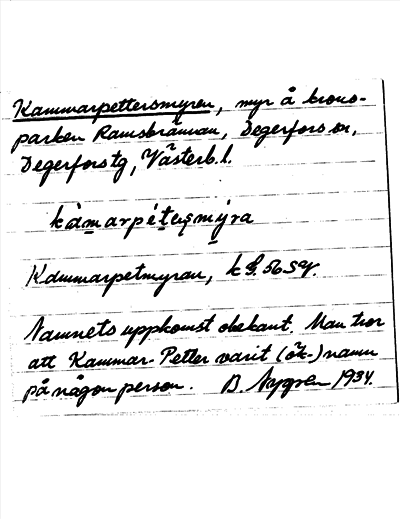 Kammarpettersmyren, myr å krono-
parken Ramsbrännan, Degerfors sn,
Degerfors tg, Västerb. l.
kàmarpétesmýra
Kammarpetmyran, k 56
Namnets uppkomst obekant. Man tror
att Kammar-Petter varit (ök-)namn
på någon person. B. Nygren 1934.